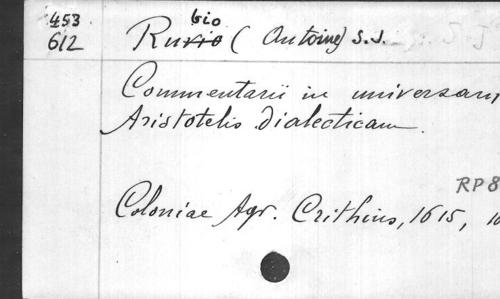 453
612
Ruvio bio (Antoine) S.J.
Commentarii in universam
Aristotelis dialecticam.
RP 8
Coloniae Agr. Crithius, 1615,